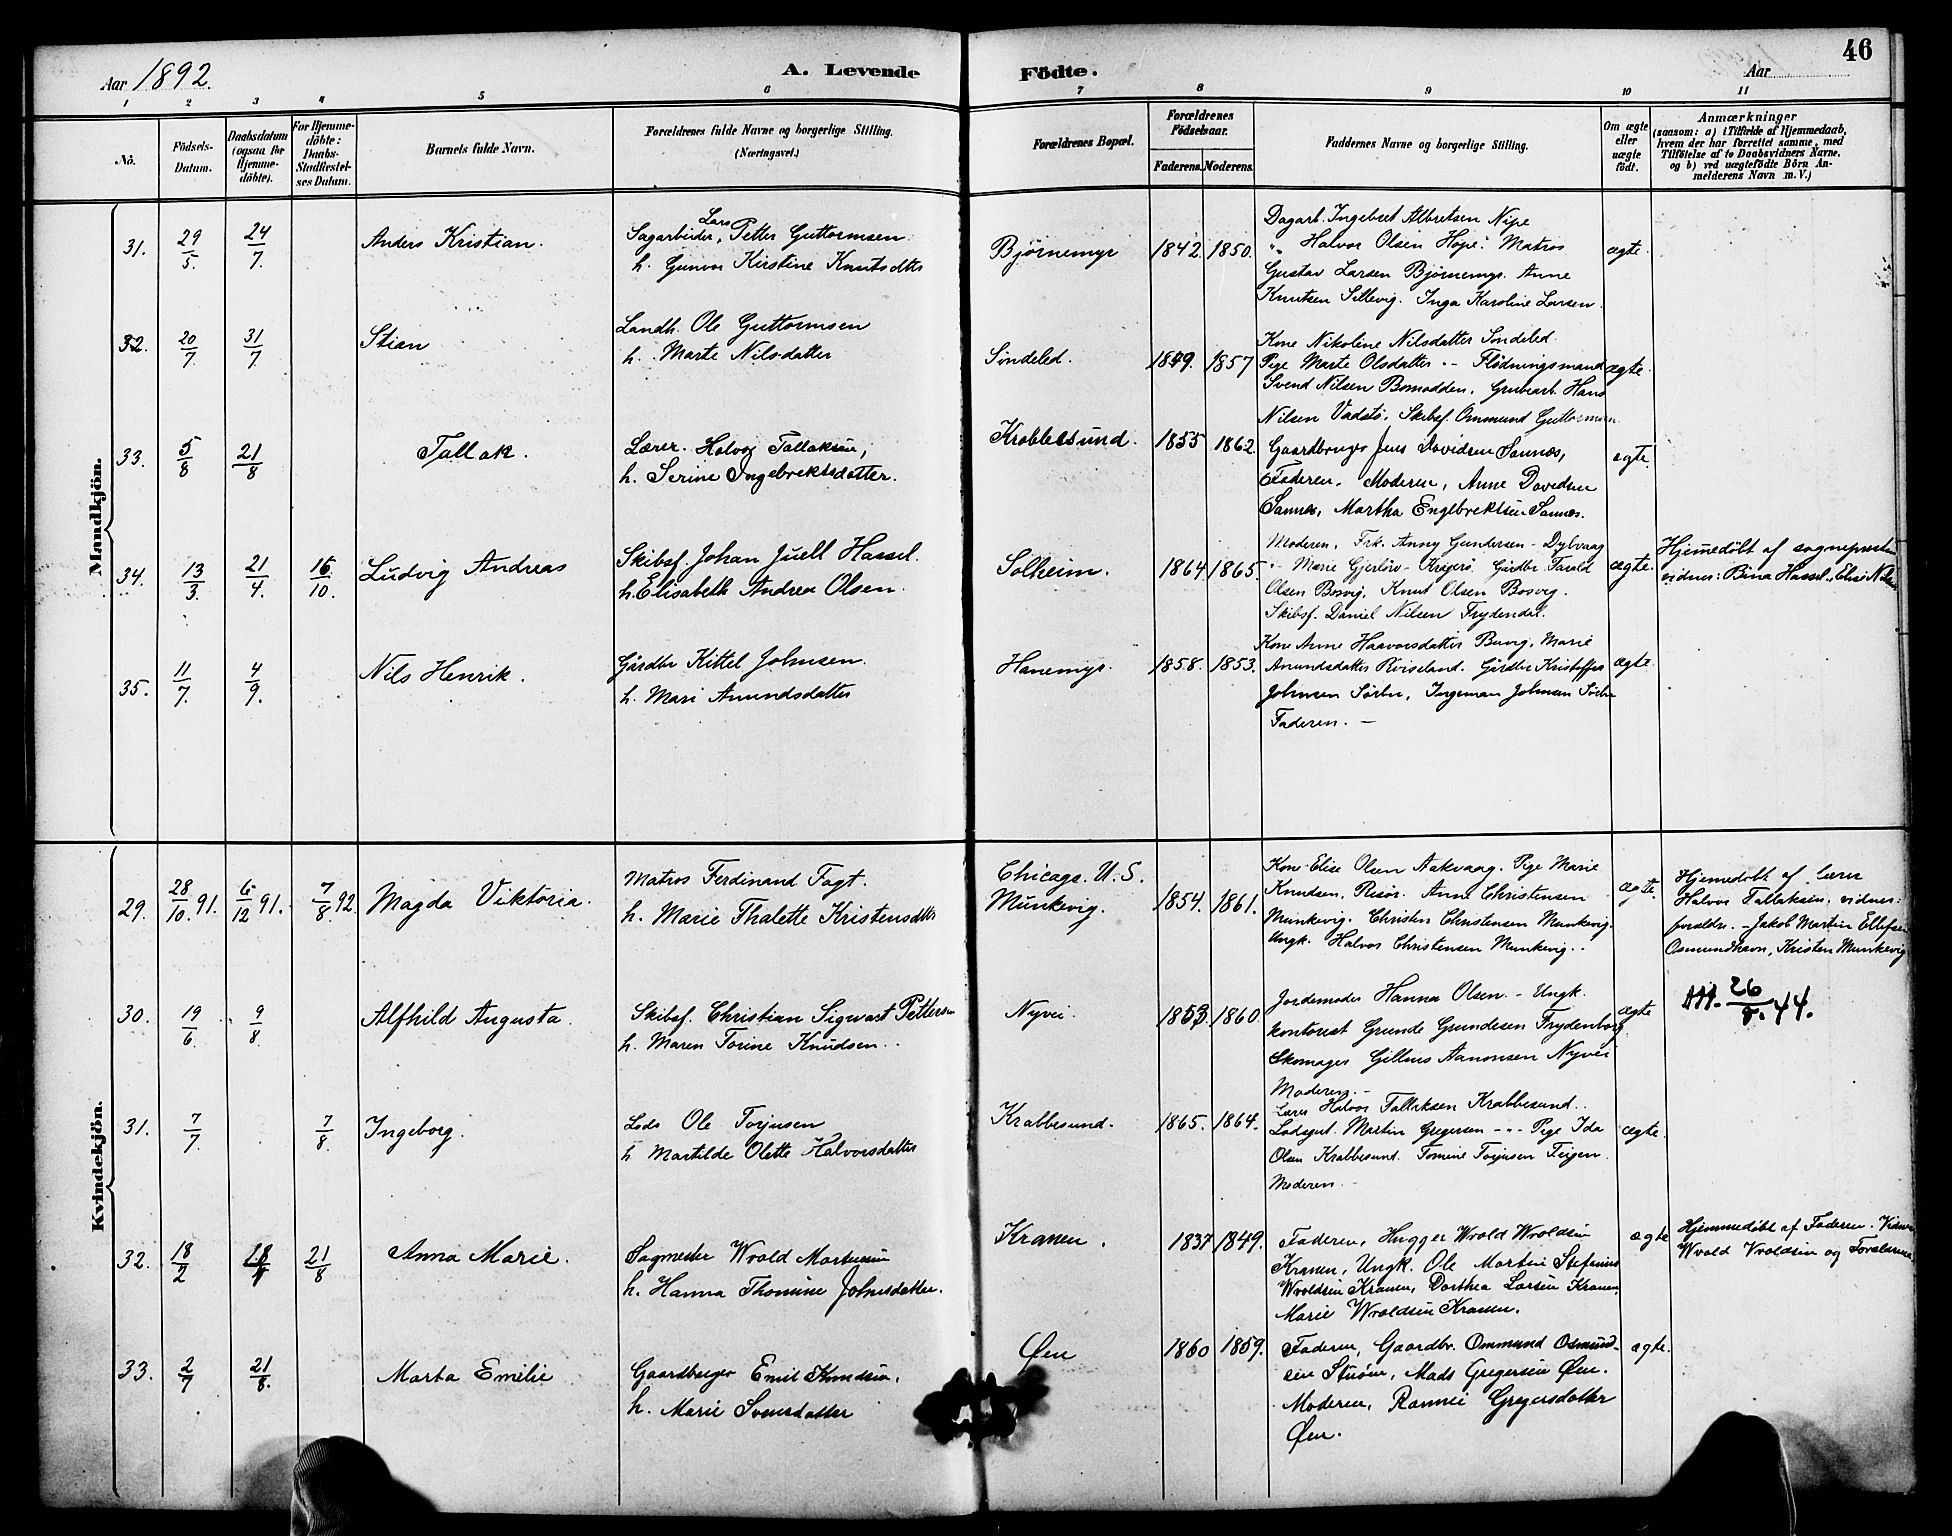 46
Aar 1892.
A. Levende Födte.
Aar
1 2 3 4 5 6 7 8 9 10 11
No.
Födsels-Datum.
Daabsdatum (ogsaa for Hjemme-döbte).
For Hjemme-döbte: Daabs-Stadfæstel-ses Datum.
Barnets fulde Navn.
Forældrenes fulde Navne og borgerlige Stilling.
(Næringsvei.)
Forældrenes Bopæl.
Forældrenes Födselsaar.
Faderens. Moderens.
Faddernes Navne og borgerlige Stilling.
Om ægte eller uægte födt.
Anmærkninger
(saasom: a) i Tilfælde af Hjemmedaab,
hvem der har forrettet samme, med
Tilföielse af to Daabsvidners Navne,
og b) ved uægtefödte Börn An-
melderens Navn m. V.)
Mandkjön.
31. 29/5. 24/7. Anders Kristian.
Sagarbeider, Lars Petter Guttormsen
h. Gunvor Kirstine Knutsdtr
Bjørnemyr 1842. 1850.
Dagarb. Ingebret Albretsen Nipe
" Halvor Olsen Hope. Matros
Gustav Larsen Bjørnemyr. Anne
Knutsen Sillevig. Inga Karoline Larsen.
ægte.
32. 20/7. 31/7. Stian
Landh. Ole Guttormsen
h. Marte Nilsdatter
Søndeled. 1849. 1857
Kone Nikoline Nilsdatter Søndeled
Pige Marte Olsdatter " - Flødningsmand
Svend Nilsen Bomodden, Grubearb. Hans
Nilsen Vadstø, Skibsf. Ommund Guttormsen
ægte.
33. 5/8 21/8 Tallak.
Lærer. Halvor Tallaksen,
h. Serine Ingebrektsdatter.
Krabbesund. 1855 1862.
Gaardbruger Jens Davidsen Sannæs,
Faderen, Moderen, Anne Davidsen
Sannæs, Martha Engebrektsen Sannæs.
ægte.
34. 13/3. 21/4. 16/10. Ludvig Andreas
Skibsf. Johan Juell Hassel.
h. Elisabeth Andrea Olsen.
Solheim. 1864 1865.
Moderen, Frk. Anny Gundersen - Dybvaag
" - Marie Gjerløv - Kragerø. Gårdbr. Tarald
Olsen Bosvig, Knut Olsen Bosvig.
Skibsf. Daniel Nilsen Frydendal.
ægte.
Hjemmedøbt af sognepresten
vidner: Bina Hassel, Elise Nilsen
35. 11/7. 4/9. Nils Henrik.
Gårdbr Kittel Johnsen.
h. Mari Amundsdatter
Hanemyr. 1858. 1853.
Kone Anne Haavorsdatter Buvig, Marie
Amundsdatter Røiseland. Gårdbr Kristoffer
Johnsen Sørbø, Ingeman Johnsen Sørbø
Faderen. -
ægte.
Kvindekjön.
29. 28/10. 91. 6/12 91. 7/8 92. Magda Viktoria.
Matros Ferdinand Fogt.
h. Marie Thalette Kristensdtr
Chicago. U. S.
Munkevig. 1854. 1861.
Kone Elise Olsen Aakvaag. Pige Marie
Knudsen, Risør. Anne Christensen
Munkevig. Christen Christensen Munkevig.
Ungk. Halvor Christensen Munkevig.
ægte.
Hjemmedøbt af lærer
Halvor Tallaksen. vidner:
foraldre. - Jakob Martin Ellefsen
Osmundhavn, Kristen Munkevig
30. 19/6 9/8. Alfhild Augusta.
Skibsf. Christian Sigwart Pettersen
h. Maren Torine Knudsen.
Nyvei. 1853. 1860.
Jordemoder Hanna Olsen. - Ungk.
kontorist Grunde Grundesen Frydenborg
Skomager Gellius Aanonsen Nyvei
Moderen. -
ægte
26/8. 44.
31. 7/7 7/8. Ingeborg.
Lods Ole Torjusen
h. Martilde Olette Halvorsdatter
Krabbesund. 1865. 1864.
Lærer Halvor Tallaksen Krabbesund.
Lodsgut. Martin Gregersen - " - Pige Ida
Olsen Krabbesund. Tomine Torjusen Feigen.
Moderen -
ægte.
32. 18/2 21/8 Anna Marie.
Sagmester Wrold Martensen
h. Hanna Thomine Johnsdatter.
Kranen. 1837 1849.
Faderen, Hugger Wrold Wroldsen
Kranen, Ungk. Ole Martin Stefanius
Wroldsen Kranen, Dorthea Larsen Kranen,
Marie Wroldsen Kranen.
ægte
Hjemmedøbt af Faderen. Vidner
Wrold Wroldsen og Foreldrene
33. 2/7 21/8. Marta Emilie
Gaardbruger Emil Knudsen,
h. Marie Svensdatter
Øen 1860 1859.
Faderen, Gaardbr. Ommund Osmund-
sen Stuøen, Mads Gregersen Øen.
Moderen, Rannei Gregersdatter
Øen.
ægte.